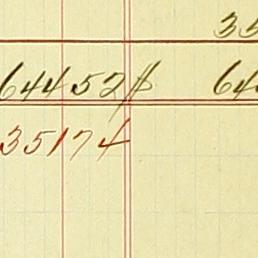 35
64452 64
35174